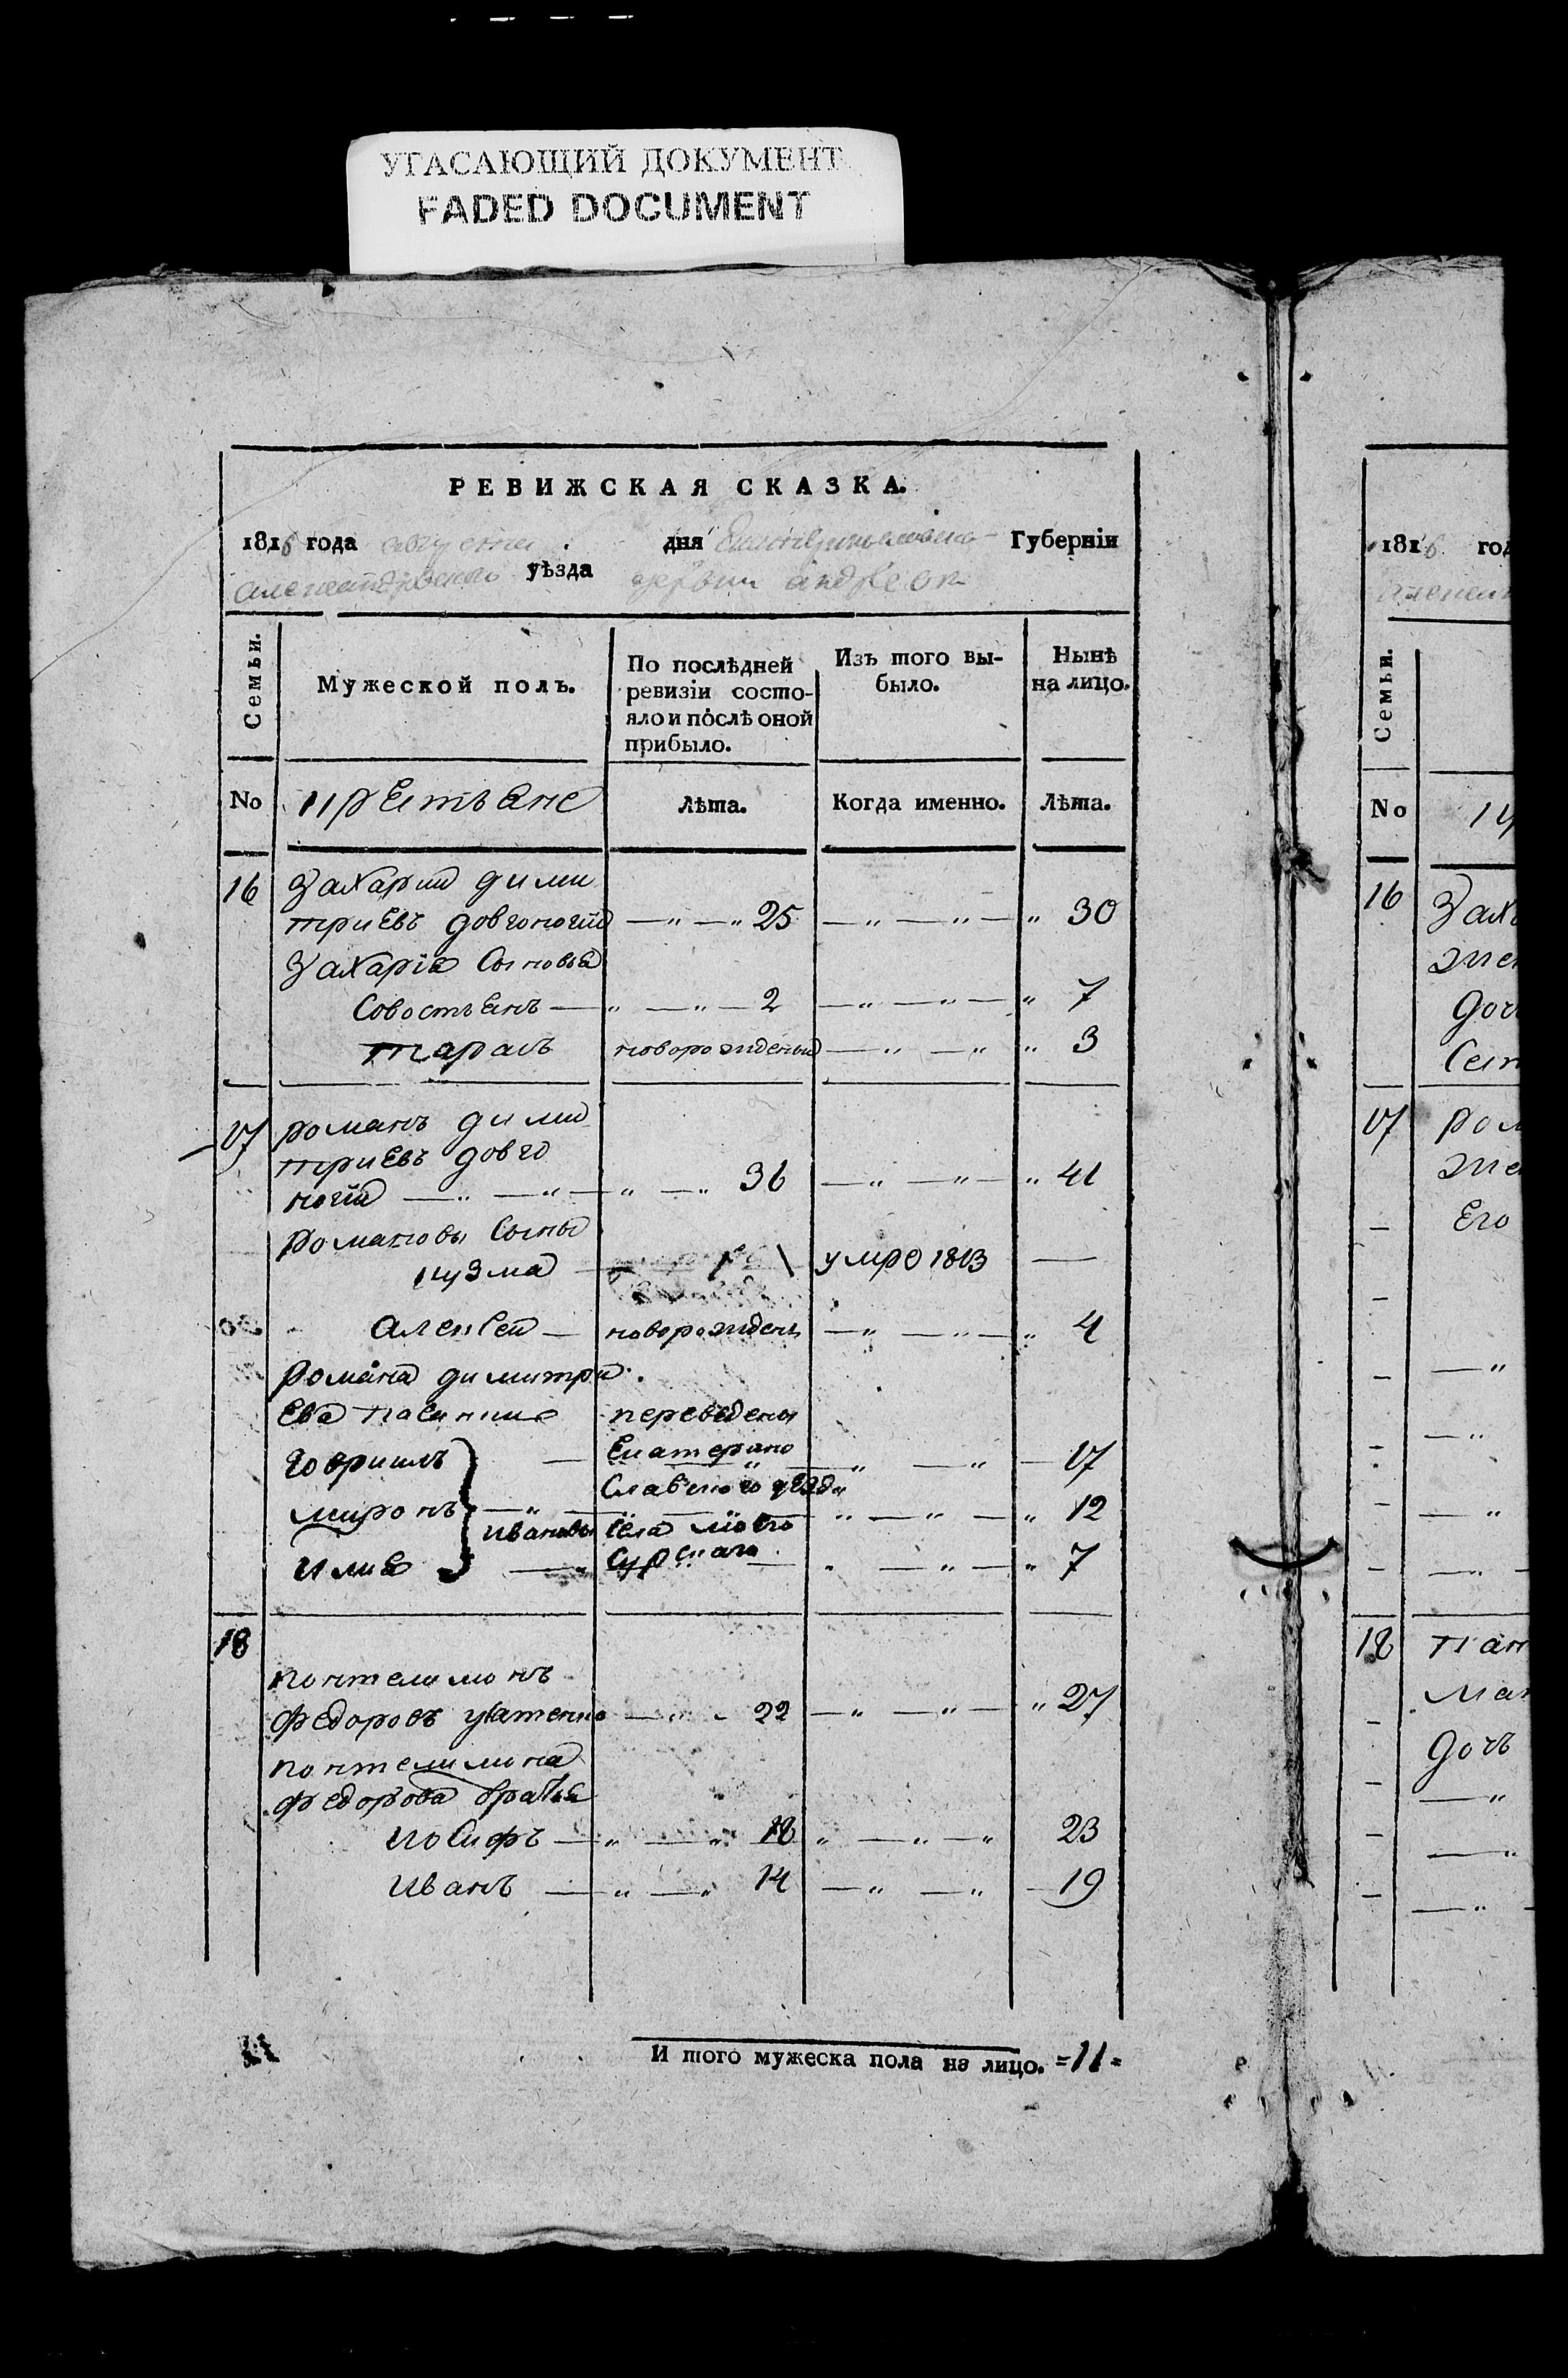 УГАСАЮЩИЙ ДОКУМЕНТ
FADED DOCUMENT
РЕВИЖСКАЯ СКАЗКА.
1816 года августа дня Екатеринославско Губерніи
александровскаго уѣзда
Семьи.
Мужеской полъ.
По послѣдней ревизіи состо-
яло и послѣ оной
прибыло.
Изъ того вы-
было.
Нынѣ
на лицо.
No крестьяне Лѣта. Когда именно. Лѣта.
16 Захарий дими
триевъ довгоногий 25 30
Захарія Сыновья
Совостьянъ 2 7
Тарасъ новорожденый 3
17 романъ дими
триевъ довго
ногий 36 41
Романовы Сыны
кузма умре 1813
Алексей новорожденъ 4
Романа димитри
ева пасинки переведены
Говрилъ Екатерино 17
Славского уезда
миронъ 12
Ивановы Села
Илия Сурскаго 7
18
понтелимонъ
Федоровъ 22 27
понтелимона
федорова братья
иосифъ 18 23
иванъ 14 19
11
И того мужеска пола на лицо. =11=
1816 год
Семьи.
No
16 Заха
жен
доч
17 Ром
жен
Его
18 Пан
дочъ